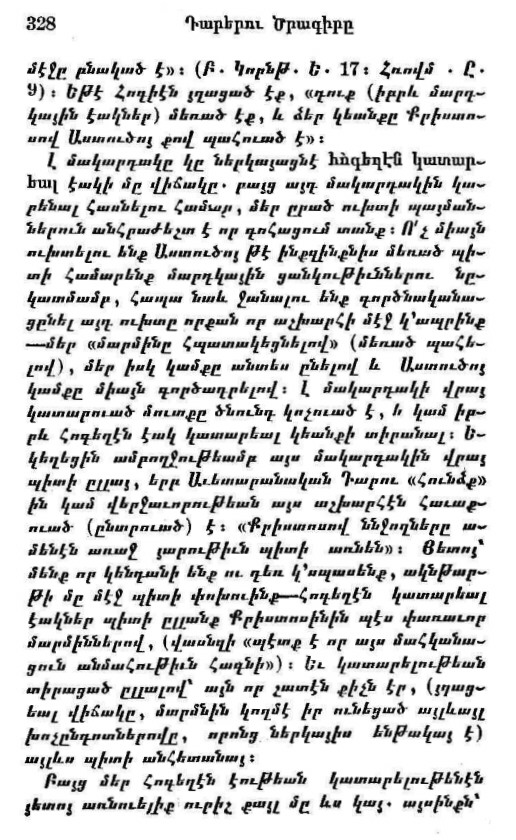 328 Դարերու Ծրագիրը
մէջը բնակած է»։ (Բ. Կորնթ. Ե. 17։ Հռովմ. Ը.
9)։ Եթէ Հոգիէն յղացած էք, «դուք (իբրև մարդ-
կային էակներ) մեռած էք, և ձեր կեանքը Քրիստո-
սով Աստուծոյ քով պահուած է»։
Լ մակարդակը կը ներկայացնէ հոգեղէն կատար-
եալ էակի մը վիճակը. բայց այդ մակարդակին կա-
րենալ հասնելու համար, մեր ըրած ուխտի պայման-
ներուն անհրաժեշտ է որ գոհացում տանք։ Ո՛չ միայն
ուխտելու ենք Աստուծոյ թէ ինքզինքնիս մեռած պի-
տի համարենք մարդկային ցանկութիւններու նը-
կատմամբ, հապա նաև ջանալու ենք գործնականա-
ցընել այդ ուխտը որքան որ աշխարհի մէջ կ՚ապրինք
—մեր «մարմինը հպատակեցնելով» (մեռած պահե-
լով), մեր իսկ կամքը անտես ընելով և Աստուծոյ
կամքը միայն գործադրելով։ Լ մակարդակի վրայ
կատարուած մուտքը ծնունդ կոչուած է, ի կամ իբ-
րև Հոգեղէն էակ կատարեալ կեանքի տիրանալ։ Ե-
կեղեցին ամբողջութեամբ այս մակարդակին վրայ
պիտի ըլլայ, երբ Աւետարանական Դարու «Հունձք»
ին կամ վերջաւորութեան այս աշխարհէն հաւաք-
ուած (ընտրուած) է։ «Քրիստոսով ննջողները ա-
մենէն առաջ յարութիւն պիտի առնեն»։ Յետոյ՝
մենք որ կենդանի ենք ու դեռ կ՚սպասենք, ակնթար-
թի մը մէջ պիտի փոխուինք—հոգեղէն կատարեալ
էակներ պիտի ըլլանք Քրիստոսինին պէս փառաւոր
մարմիններով, (վասնզի «պէտք է որ այս մահկանա-
ցուն անմահութիւն հագնի»)։ Եւ կատարելութեան
տիրացած ըլլալով՝ այն որ շատէն քիչն էր, (յղաց-
եալ վիճակը, մտրմնին կողմէ իր ունեցած այլևայլ
խոչընդոտներովը, որոնց ներկայիս ենթակայ է)
այլևս պիտի անհետանայ։
Բայց մեր Հոգեղէն էութեան կատարելութենէն
յետոյ առնուելիք ուրիշ քայլ մը ևս կայ. այսինքն՝